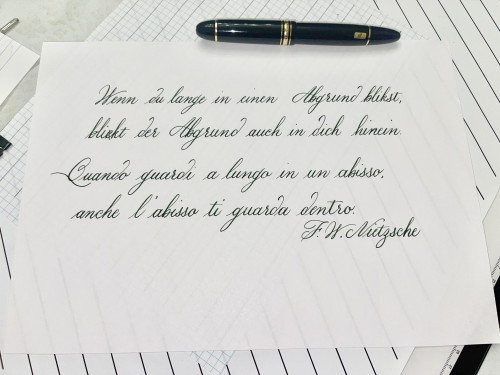 Wenn du lange in einen Abgrund blikst,
blickt der Abgrund auch in dich hinein.
Quando guardi a lungo in un abisso,
anche l'abisso ti guarda dentro.
F.W.Nietzsche